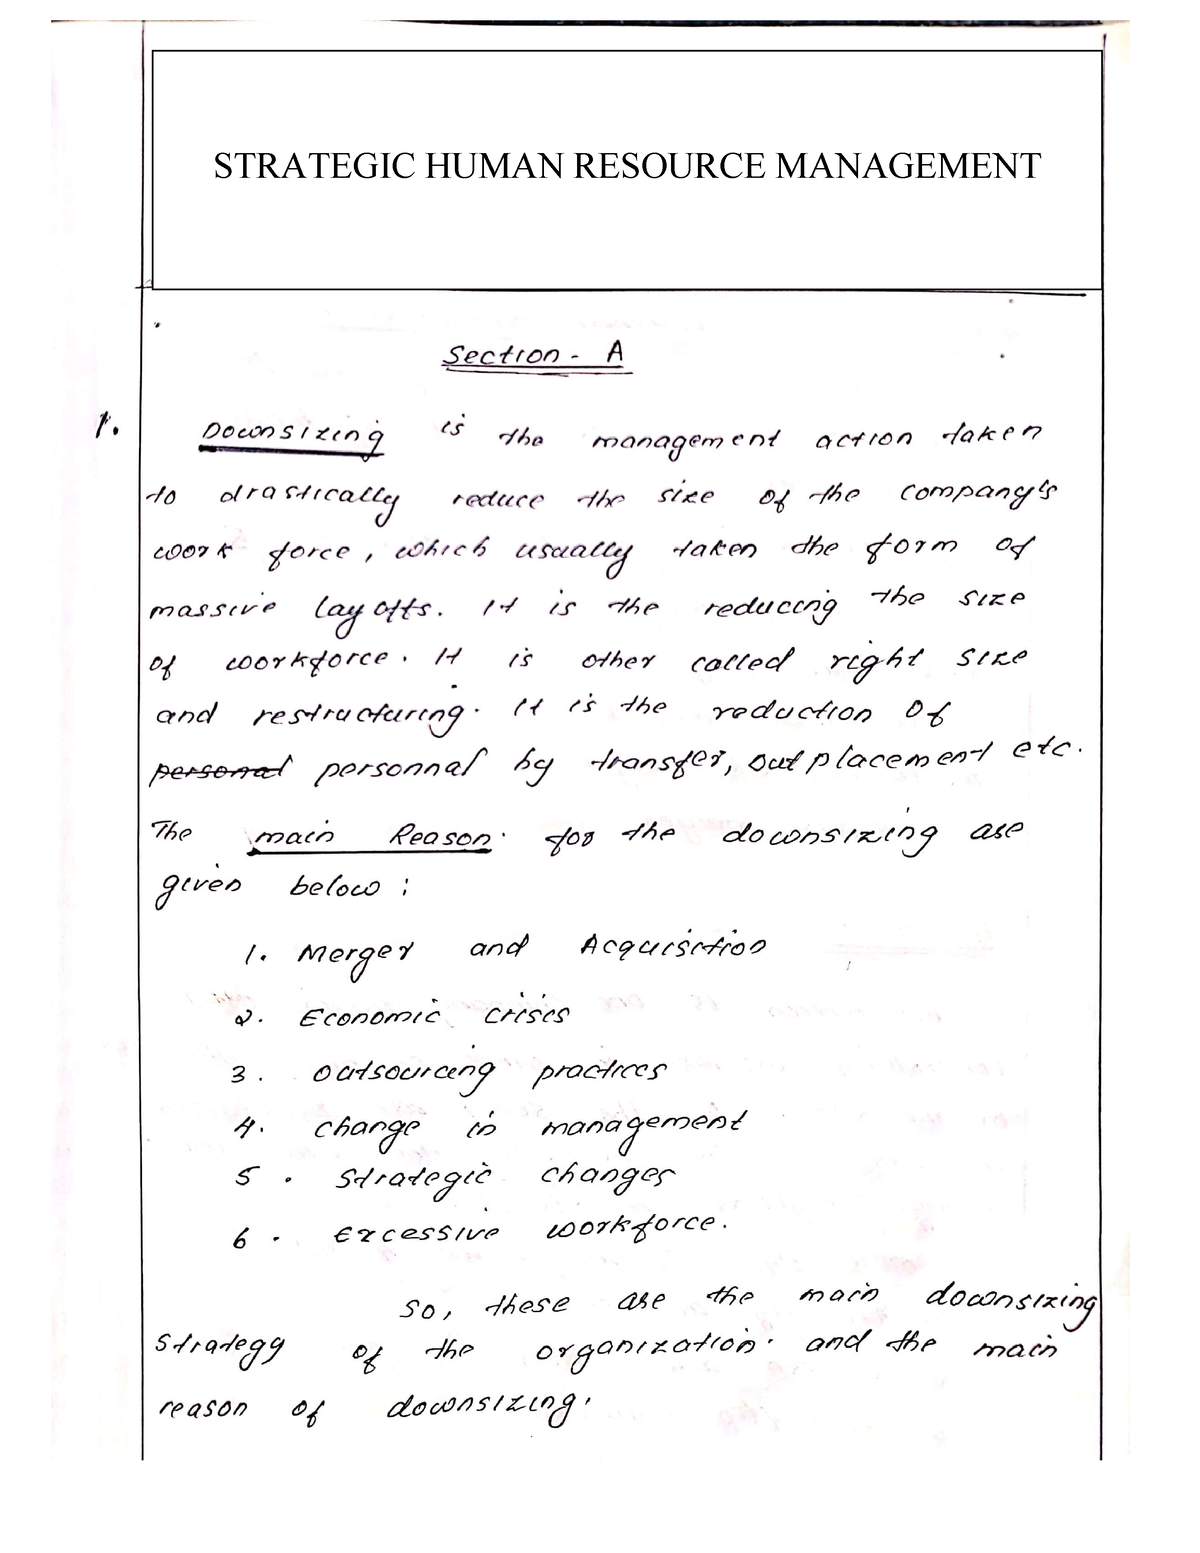 STRATEGIC HUMAN RESOURCE MANAGEMENT
Section - A
1. Downsizing is the management action taken
to drastically reduce the size of the company's
work force, which usually taken the form of
massive lay offs. It is the reducing the size
of workforce. It is other called right size
and restructuring. It is the reduction of
personal personnal by transfer, out placement etc.
The main Reason for the downsizing are
given below :
1. Merger and Acquisition
2. Economic crisis
3. outsourcing practices
4. change in management
5. Strategic changes
6. Excessive workforce.
So, these are the main downsizing
strategy of the organization. and the main
reason of downsizing.